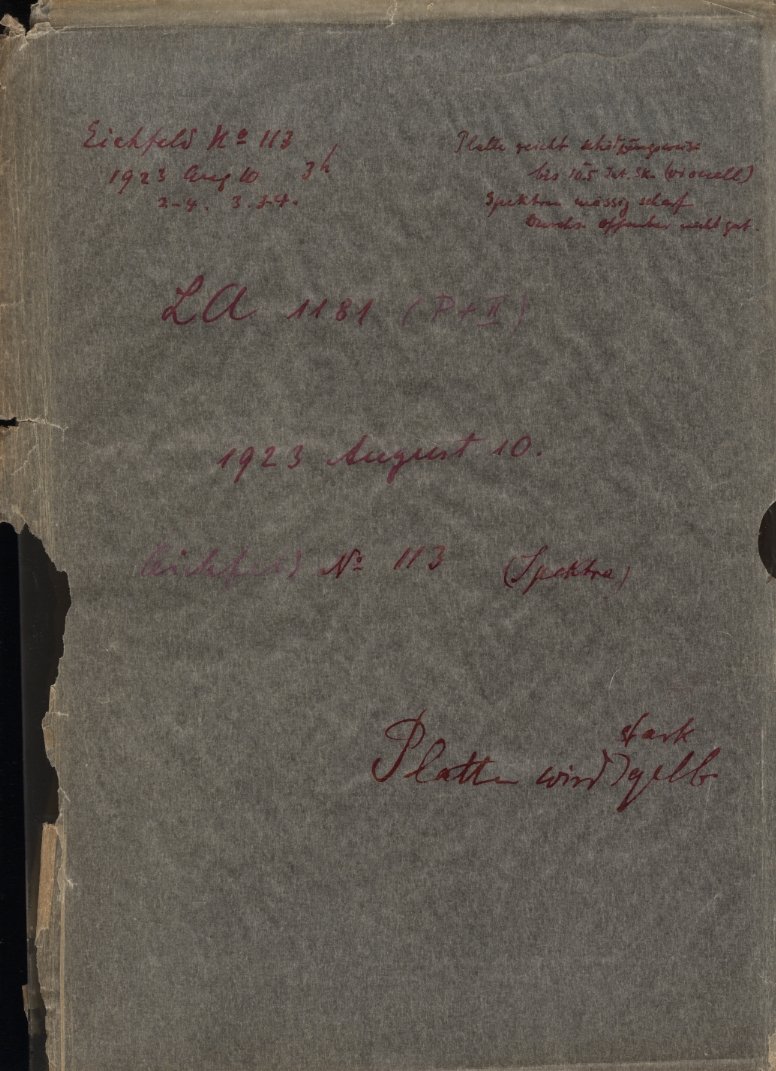 Eichfeld No 113
1923 Aug 10 3h
2-4. 3.3-4.
Platte reicht schätzungsweise
bis 10.5 Int. Sk. (visuell)
Spektren mässig scharf
Durchs. offenbar nicht gut.
LA 1181 (P+II)
1923 August 10.
Eichfeld No 113 (Spektra)
stark
Platte wird gelb